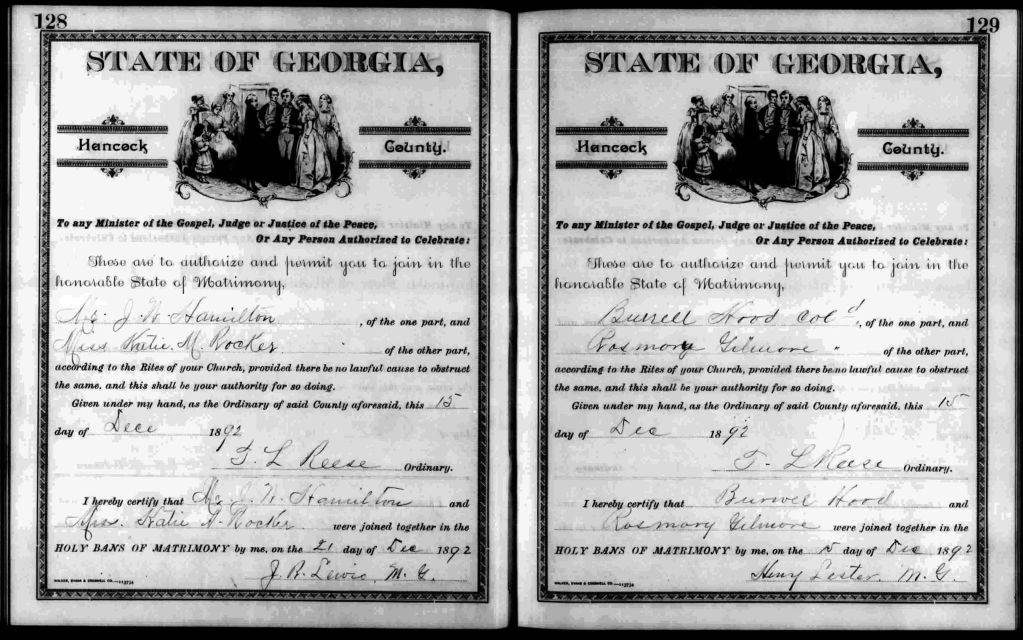 128
STATE OF GEORGIA,
Hancock County.
To any Minister of the Gospel, Judge or Justice of the Peace,
Or Any Person Authorized to Celebrate:
These are to authorize and permit you to join in the
honorable State of Matrimony,
Mr. J. W. Hamilton, of the one part, and
Miss Katie. M. Rocker of the other part,
according to the Rites of your Church, provided there be no lawful cause to obstruct
the same, and this shall be your authority for so doing.
Given under my hand, as the Ordinary of said County aforesaid, this 15
day of Dece 1892
T. L Reese Ordinary.
I hereby certify that Mr J. W. Hamilton and
Miss. Katie M. Rocker were joined together in the
HOLY BANS OF MATRIMONY by me, on the 21 day of Dec 1892
J. R. Lewis, M. G.
129
STATE OF GEORGIA,
Hancock County.
To any Minister of the Gospel, Judge or Justice of the Peace,
Or Any Person Authorized to Celebrate:
These are to authorize and permit you to join in the
honorable State of Matrimony,
Burrell Hood Col d, of the one part, and
Rosmory Gilmore " of the other part,
according to the Rites of your Church, provided there be no lawful cause to obstruct
the same, and this shall be your authority for so doing.
Given under my hand, as the Ordinary of said County aforesaid, this 15
day of Dec 1892
T. L Reese Ordinary.
I hereby certify that Burwel Hood and
Rosmory Gilmore were joined together in the
HOLY BANS OF MATRIMONY by me, on the 15 day of Dec 1892
Henry Lester. M. G.